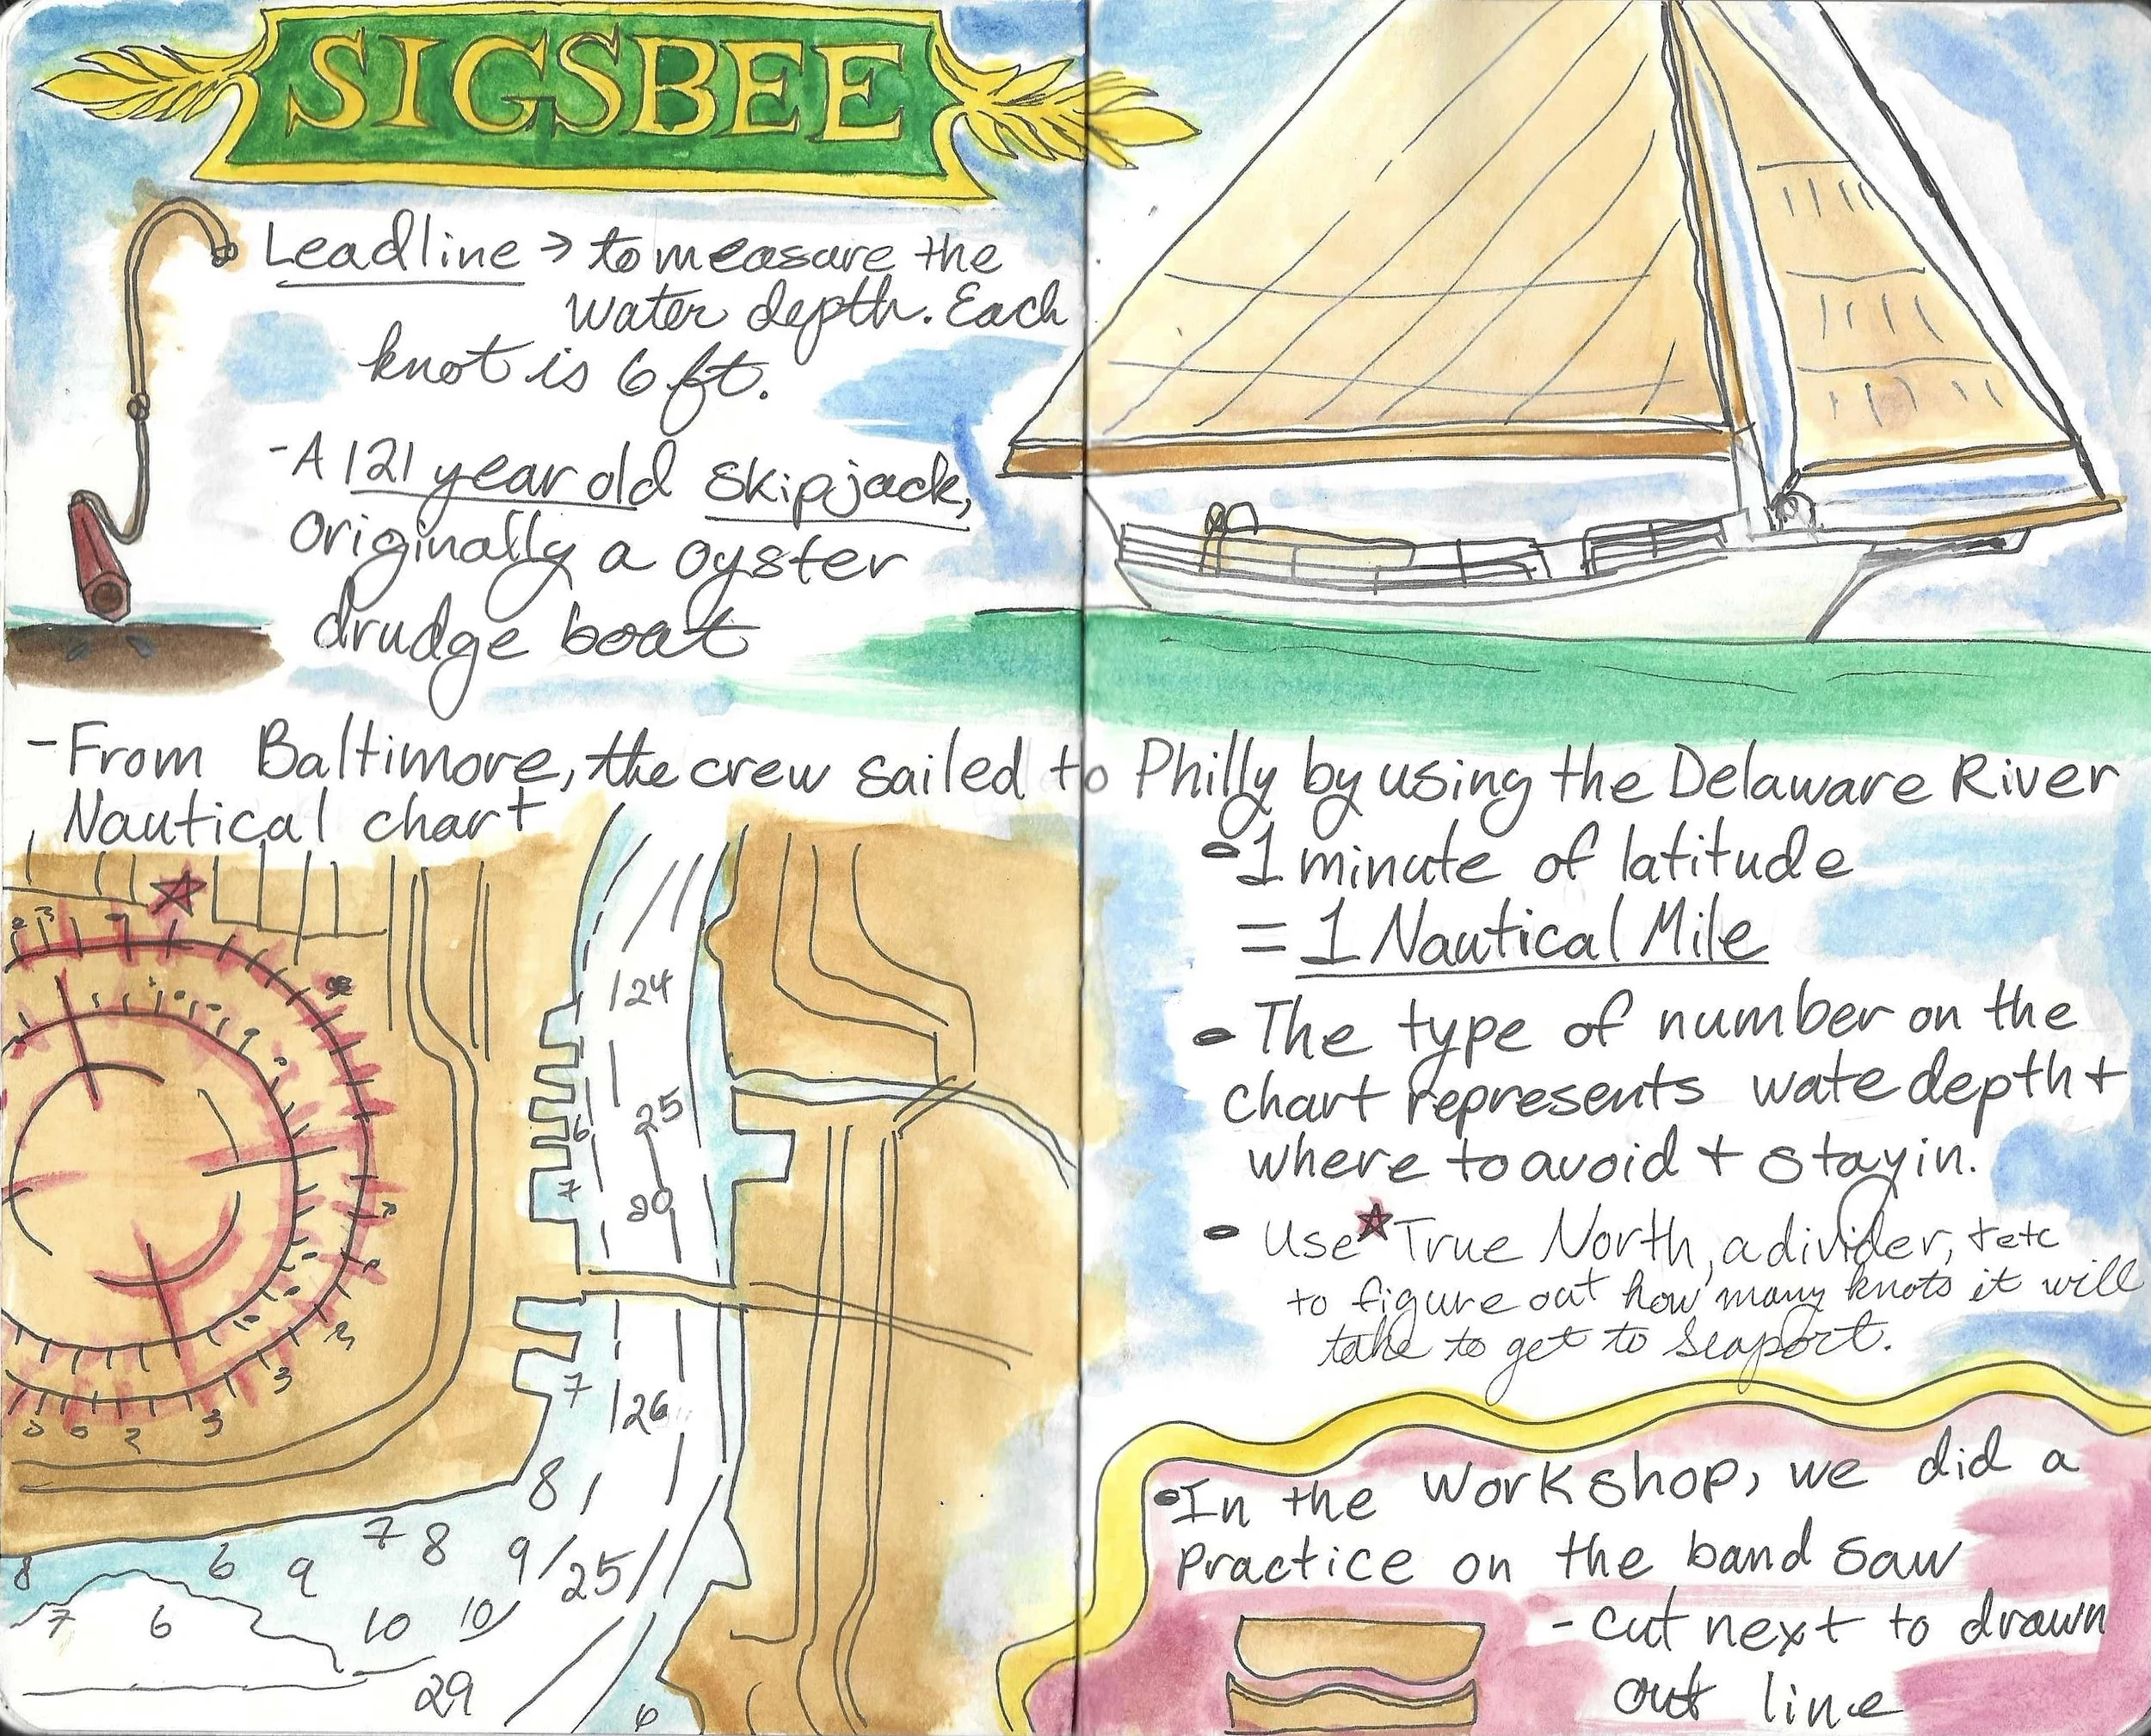 SIGSBEE
Leadline → to measure the
water depth. Each
knot is 6 ft.
- A 121 year old skipjack,
Originally a oyster
drudge boat
- From Baltimore, the crew sailed to Philly by using the Delaware River
Nautical chart
• 1 minute of latitude
= 1 Nautical Mile
• The type of number on the
chart represents wate depth +
where to avoid + stay in.
• Use ★ True North, a divider, + etc
to figure out how many knots it will
take to get to seaport.
24
25
6
7
20
7
26
8
7 8 9 25
8 6 9
7 6 10 10
29
6
• In the workshop, we did a
practice on the band saw
- cut next to drawn
out line